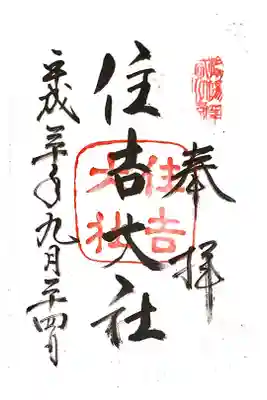 奉拝
住吉大社
住吉
大社
平成二十年九月二十四日